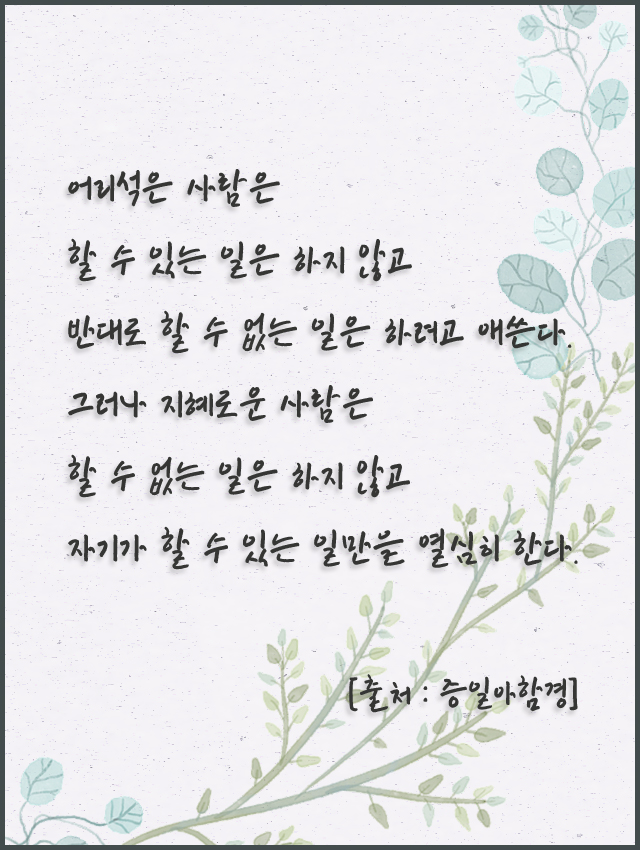 어리석은 사람은
할 수 있는 일은 하지 않고
반대로 할 수 없는 일은 하려고 애쓴다.
그러나 지혜로운 사람은
할 수 없는 일은 하지 않고
자기가 할 수 있는 일만을 열심히 한다.
[출처 : 증일아함경]